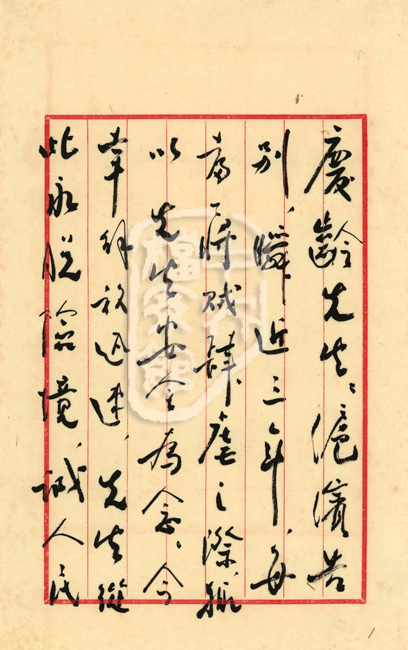 慶齡先生：滬濱告
別，瞬近三年，每
當蔣賊肆虐之際，輒
以先生安全為念。今
幸解放迅速，先生從
此永脫險境，誠人民
1